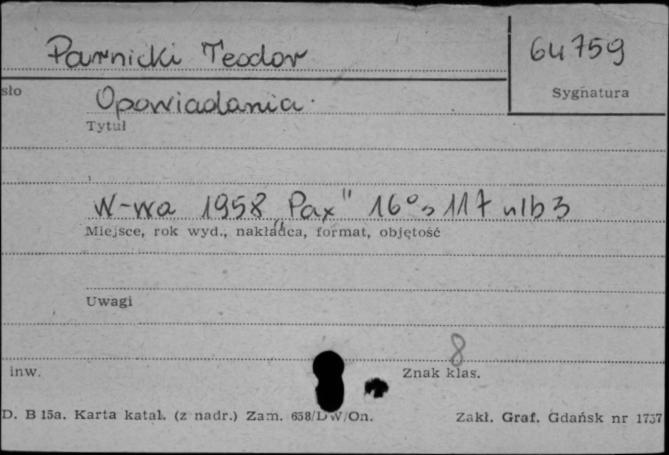 Parnicki Teodor
64759
sło
Sygnatura
Opowiadania.
Tytuł
W-wa 1958 „Pax" 16° s 117 nlb 3
Miejsce, rok wyd., nakładca, format, objętość
Uwagi
8
inw.
Znak klas.
D. B 15a. Karta katal. (z nadr.) Zam. 658/DW/On.
Zakł. Graf. Gdańsk nr 1737